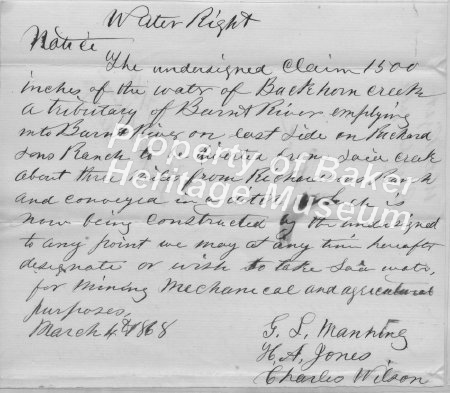 Water Right
Notice
The undersigned Claim 1500
inches of the water of Buckhorn creek
a tributary of Burnt River emptying
into Burnt River on east side on Richard
sons Ranch to be from said creek
about three miles from Richardsons Ranch
and conveyed in a which is
now being constructed by the undersigned
to any point we may at any time hereafter
designate or wish to take said water,
for mining Mechanical and agricultural
purposes,
March 4th 1868
G. L. Manning
H. A. Jones
Charles Wilson
Property of Baker
Heritage Museum